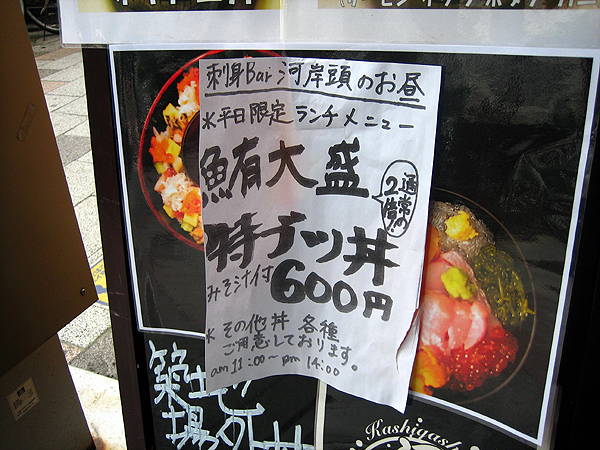 刺身Bar河岸頭のお昼
※平日限定ランチメニュー
鮪有大盛
通常の
2倍!!
特デッツ丼
みそ汁付
600円
※その他丼 各種
ご用意しております。
am11:00〜pm14:00
築土
場外
Kashigash